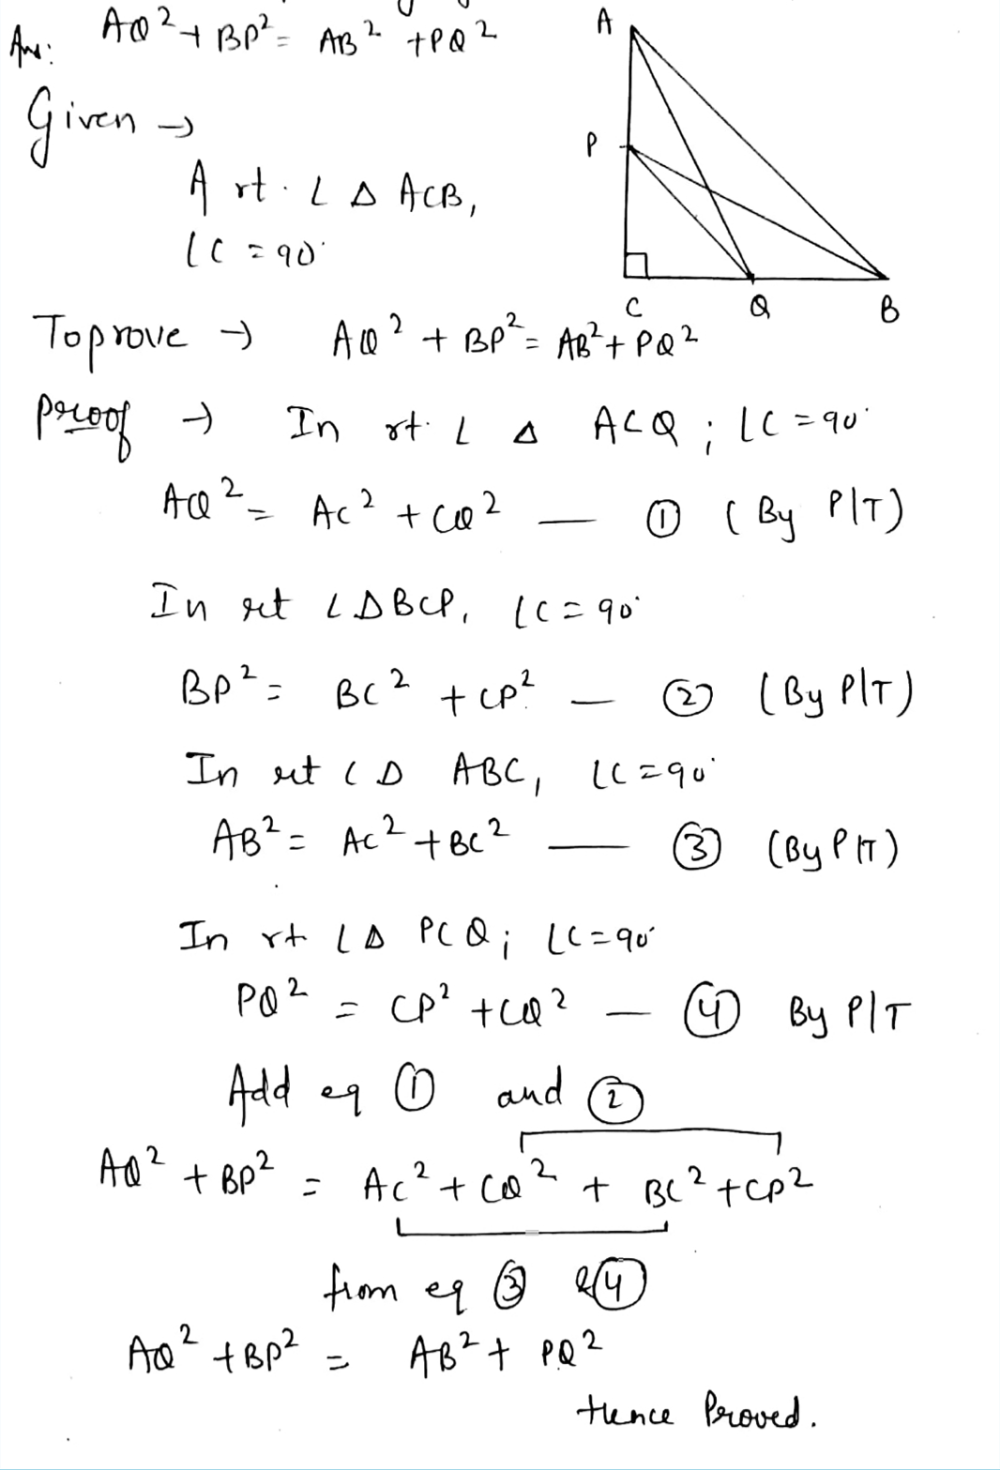 Ans: AQ² + BP² = AB² + PQ²
A
Given →
P
A rt. ∠ Δ ACB,
∠C = 90°
C Q B
To prove → AQ² + BP² = AB² + PQ²
Proof → In rt. ∠ Δ ACQ ; ∠C = 90°
AQ² = AC² + CQ² — ① (By P/T)
In rt ∠ Δ BCP, ∠C = 90°
BP² = BC² + CP² — ② (By P/T)
In rt ∠ Δ ABC, ∠C = 90°
AB² = AC² + BC² — ③ (By P/T)
In rt ∠ Δ PCQ ; ∠C = 90°
PQ² = CP² + CQ² — ④ By P/T
Add eq ① and ②
AQ² + BP² = AC² + CQ² + BC² + CP²
from eq ③ & ④
AQ² + BP² = AB² + PQ²
Hence Proved.